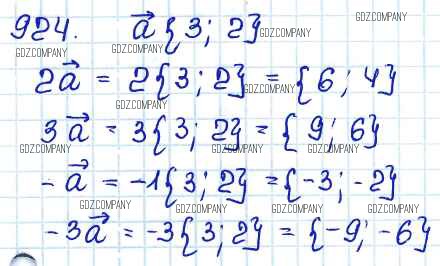 924. a⃗{3; 2}
2a⃗ = 2{3; 2} = {6; 4}
3a⃗ = 3{3; 2} = {9; 6}
-a⃗ = -1{3; 2} = {-3; -2}
-3a⃗ = -3{3; 2} = {-9; -6}
GDZ.COMPANY
GDZ.COMPANY
GDZ.COMPANY
GDZ.COMPANY
GDZ.COMPANY
GDZ.COMPANY
GDZ.COMPANY
GDZ.COMPANY
GDZ.COMPANY
GDZ.COMPANY
GDZ.COMPANY
GDZ.COMPANY
GDZ.COMPANY